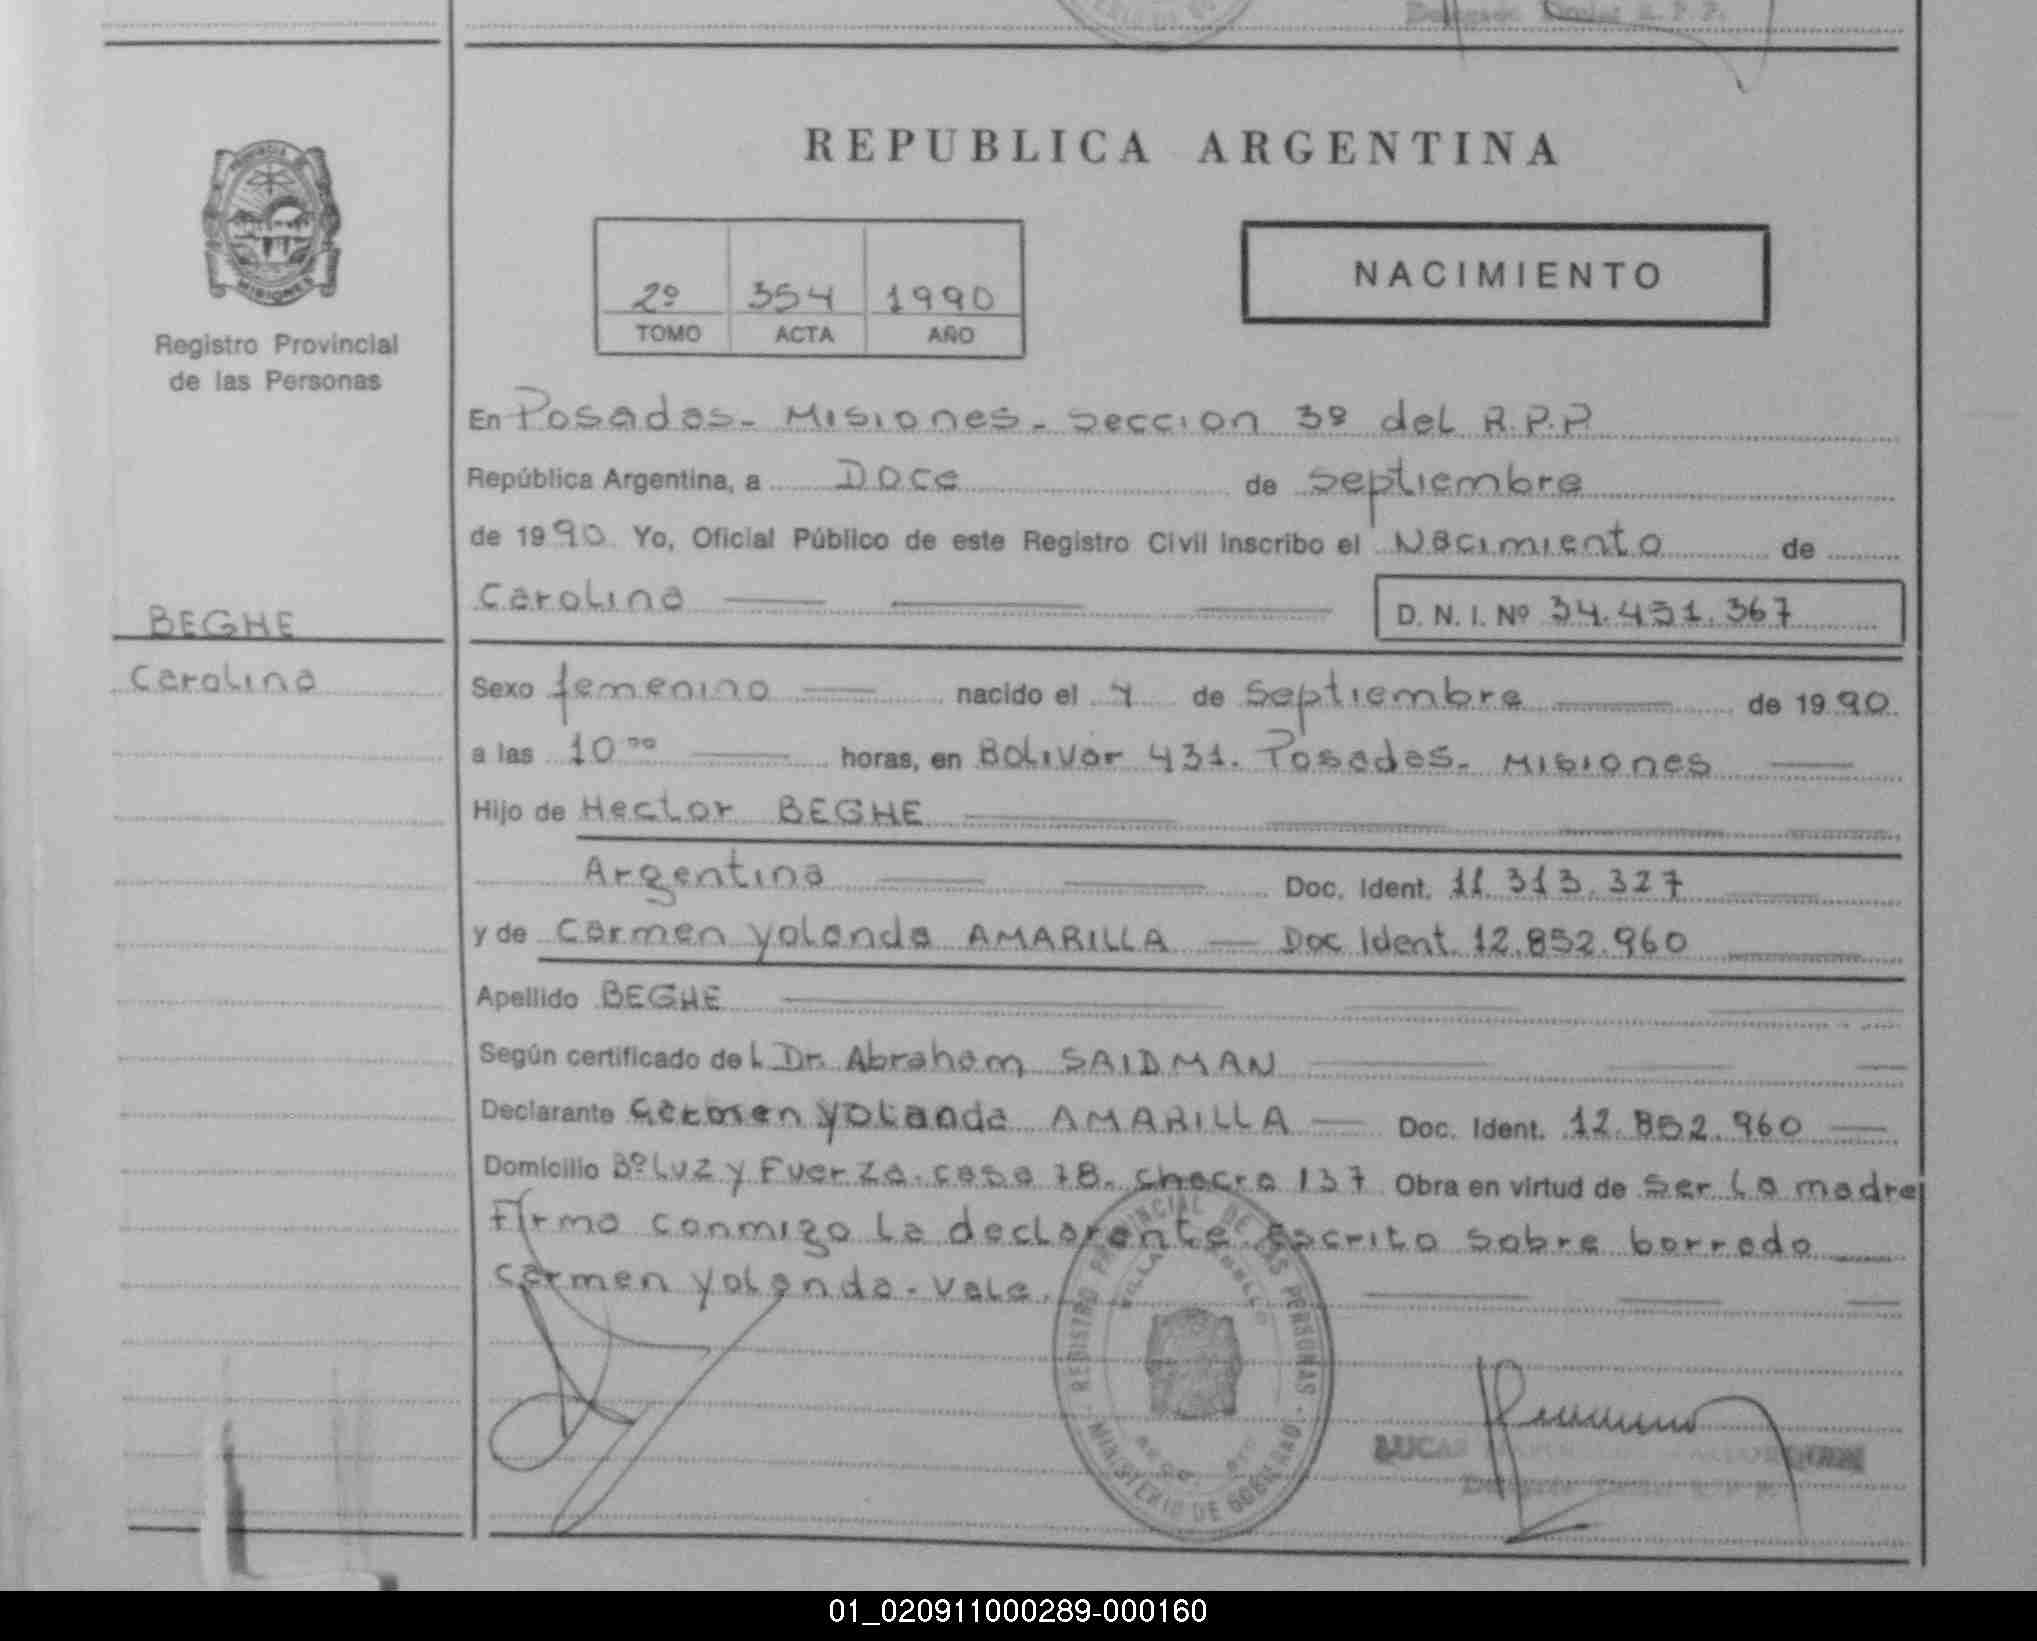 Delegado Titular R. P. P.
REPUBLICA ARGENTINA
2º 354 1990
TOMO ACTA AÑO
NACIMIENTO
PROVINCIA DE
MISIONES
Registro Provincial
de las Personas
En Posadas - Misiones - Seccion 3º del R.P.P
República Argentina, a Doce de septiembre
de 1990 Yo, Oficial Público de este Registro Civil inscribo el Nacimiento de
Carolina D. N. I. Nº 34.451.367
BEGHE
Carolina
Sexo femenino nacido el 4 de septiembre de 1990
a las 10 ºº horas, en Bolivar 431. Posadas - Misiones
Hijo de Hector BEGHE
Argentina Doc. Ident. 11.313.327
y de Carmen Yolanda AMARILLA Doc Ident 12.852.960
Apellido BEGHE
Según certificado del Dr. Abraham SAIDMAN
Declarante Carmen Yolanda AMARILLA Doc. Ident. 12.852.960
Domicilio Bº Luz y Fuerza. casa 78. chacra 137 Obra en virtud de Ser la madre
Firma conmigo la declarante. Escrito sobre borrado
Carmen Yolanda - Vale.
REGISTRO PROVINCIAL DE LAS PERSONAS
MINISTERIO DE GOBIERNO
LUCAS
01_020911000289-000160